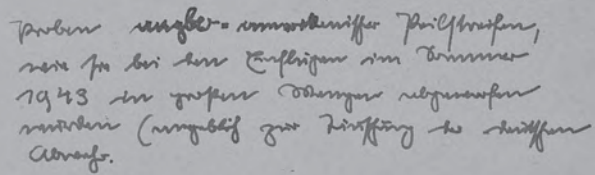 Proben anglo-amerikanischer Stanniolstreifen,
wie sie bei den Einflügen im Sommer
1943 in großen Mengen abgeworfen
wurden (angeblich zur Täuschung der deutschen
Abwehr.